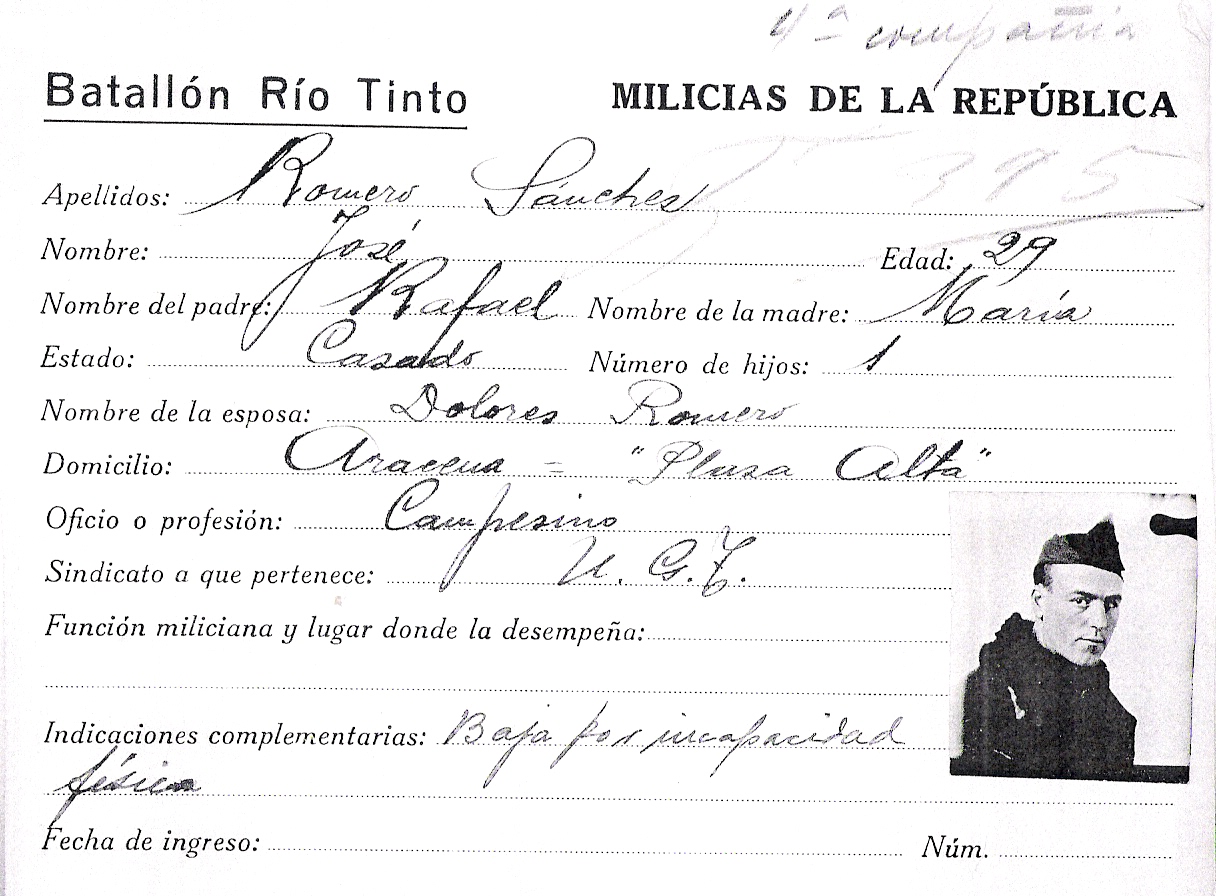 4ª compañia
Batallón Río Tinto MILICIAS DE LA REPÚBLICA
395
Apellidos: Romero Sánches
Nombre: José Edad: 29
Nombre del padre: Rafael Nombre de la madre: María
Estado: Casado Número de hijos: 1
Nombre de la esposa: Dolores Romero
Domicilio: Aracena = "Plasa Alta"
Oficio o profesión: Campesino
Sindicato a que pertenece: U. G. T.
Función miliciana y lugar donde la desempeña:
Indicaciones complementarias: Baja por incapacidad
física
Fecha de ingreso: Núm.